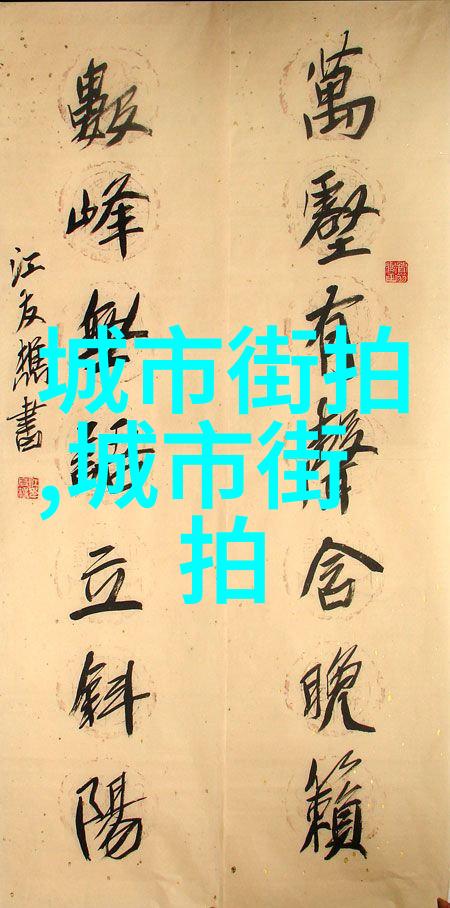 萬壑有聲含晚籟
數峰無語立斜陽
江友樵書
城市街拍
,城市街
拍